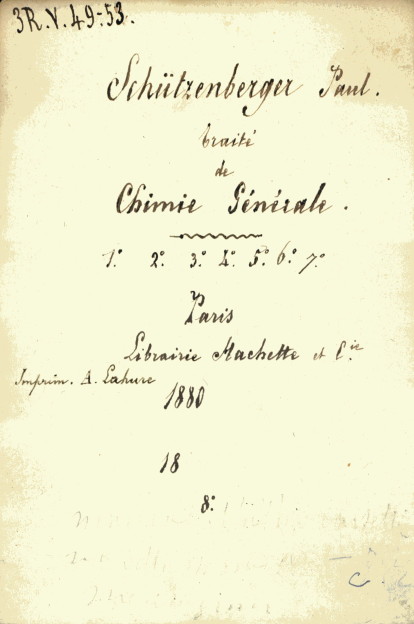 3R.V.49-53.
Schützenberger Paul.
traité
de
Chimie Générale.
1º 2º. 3º. 4º. 5º. 6º. 7º
Paris
Librairie Hachette et C.ie
Imprim. A. Lahure
1880
18
8º.
C.